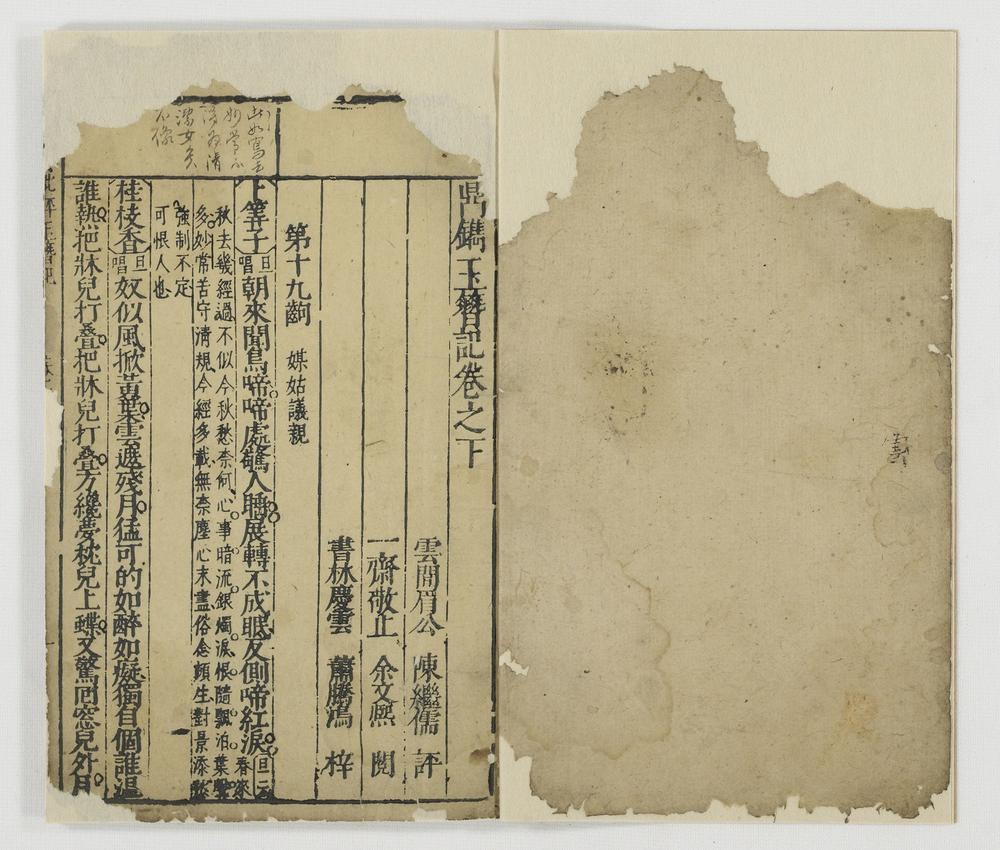 鼎鐫玉簪記卷之下
雲間眉公 陳繼儒 評
一齋敬止 余文熙 閱
書林慶雲 蕭騰鴻 梓
第十九齣 媒姑議親
下筭子 旦唱 朝來聞鳥啼啼處驚人睡展轉不成眠反側啼紅淚 旦云 春來
秋去幾經過不似今秋愁奈何心事暗流銀燭淚恨隨飄泊葉聲
多妙常苦守清規今經多載無奈塵心未盡俗念頗生對景添愁
強制不定
可恨人也
桂枝查 旦唱 奴似風掀黃葉雲遮殘月猛可的如醉如癡獨自個誰溫
誰熱把牀兒打叠把牀兒打叠方纔夢枕兒上蝶又驚囘窓兒外月
此如寫
妙常亦
清
濡女矣
不像